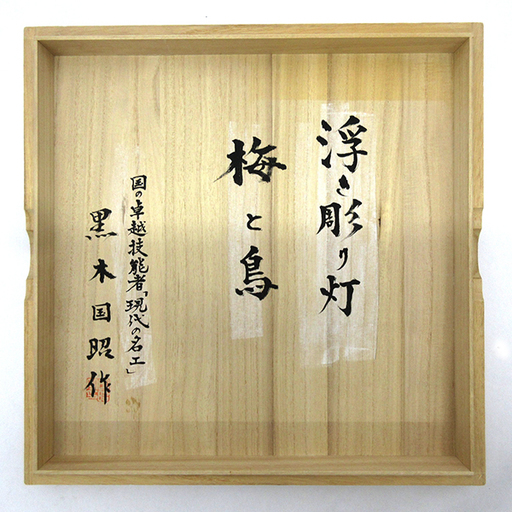 浮き彫り灯
梅と鳥
国の卓越技能者「現代の名工」
黒木国昭作